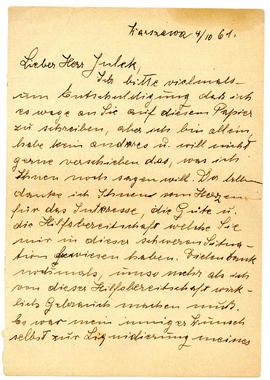 Warszawa 4/10 61.
Lieber Herr Julek,
Ich bitte vielmals
um Entschuldigung daß ich
es wage an Sie auf diesem Papier
zu schreiben, aber ich bin allein,
habe kein anderes u. will nicht
gerne verschieben das, was ich
Ihnen noch sagen will. Da allem
danke ich Ihnen vom Herzen
für das Interesse, die Güte u.
die Hilfsbereitschaft welche Sie
mir in dieser schweren Situa-
tion bewiesen haben. Vielen Dank
nochmals, umso mehr als ich
von dieser Hilfsbereitschaft wirk-
lich Gebrauch machen muß.
Es war mein inniger Wunsch
selbst zur Liquidierung meines